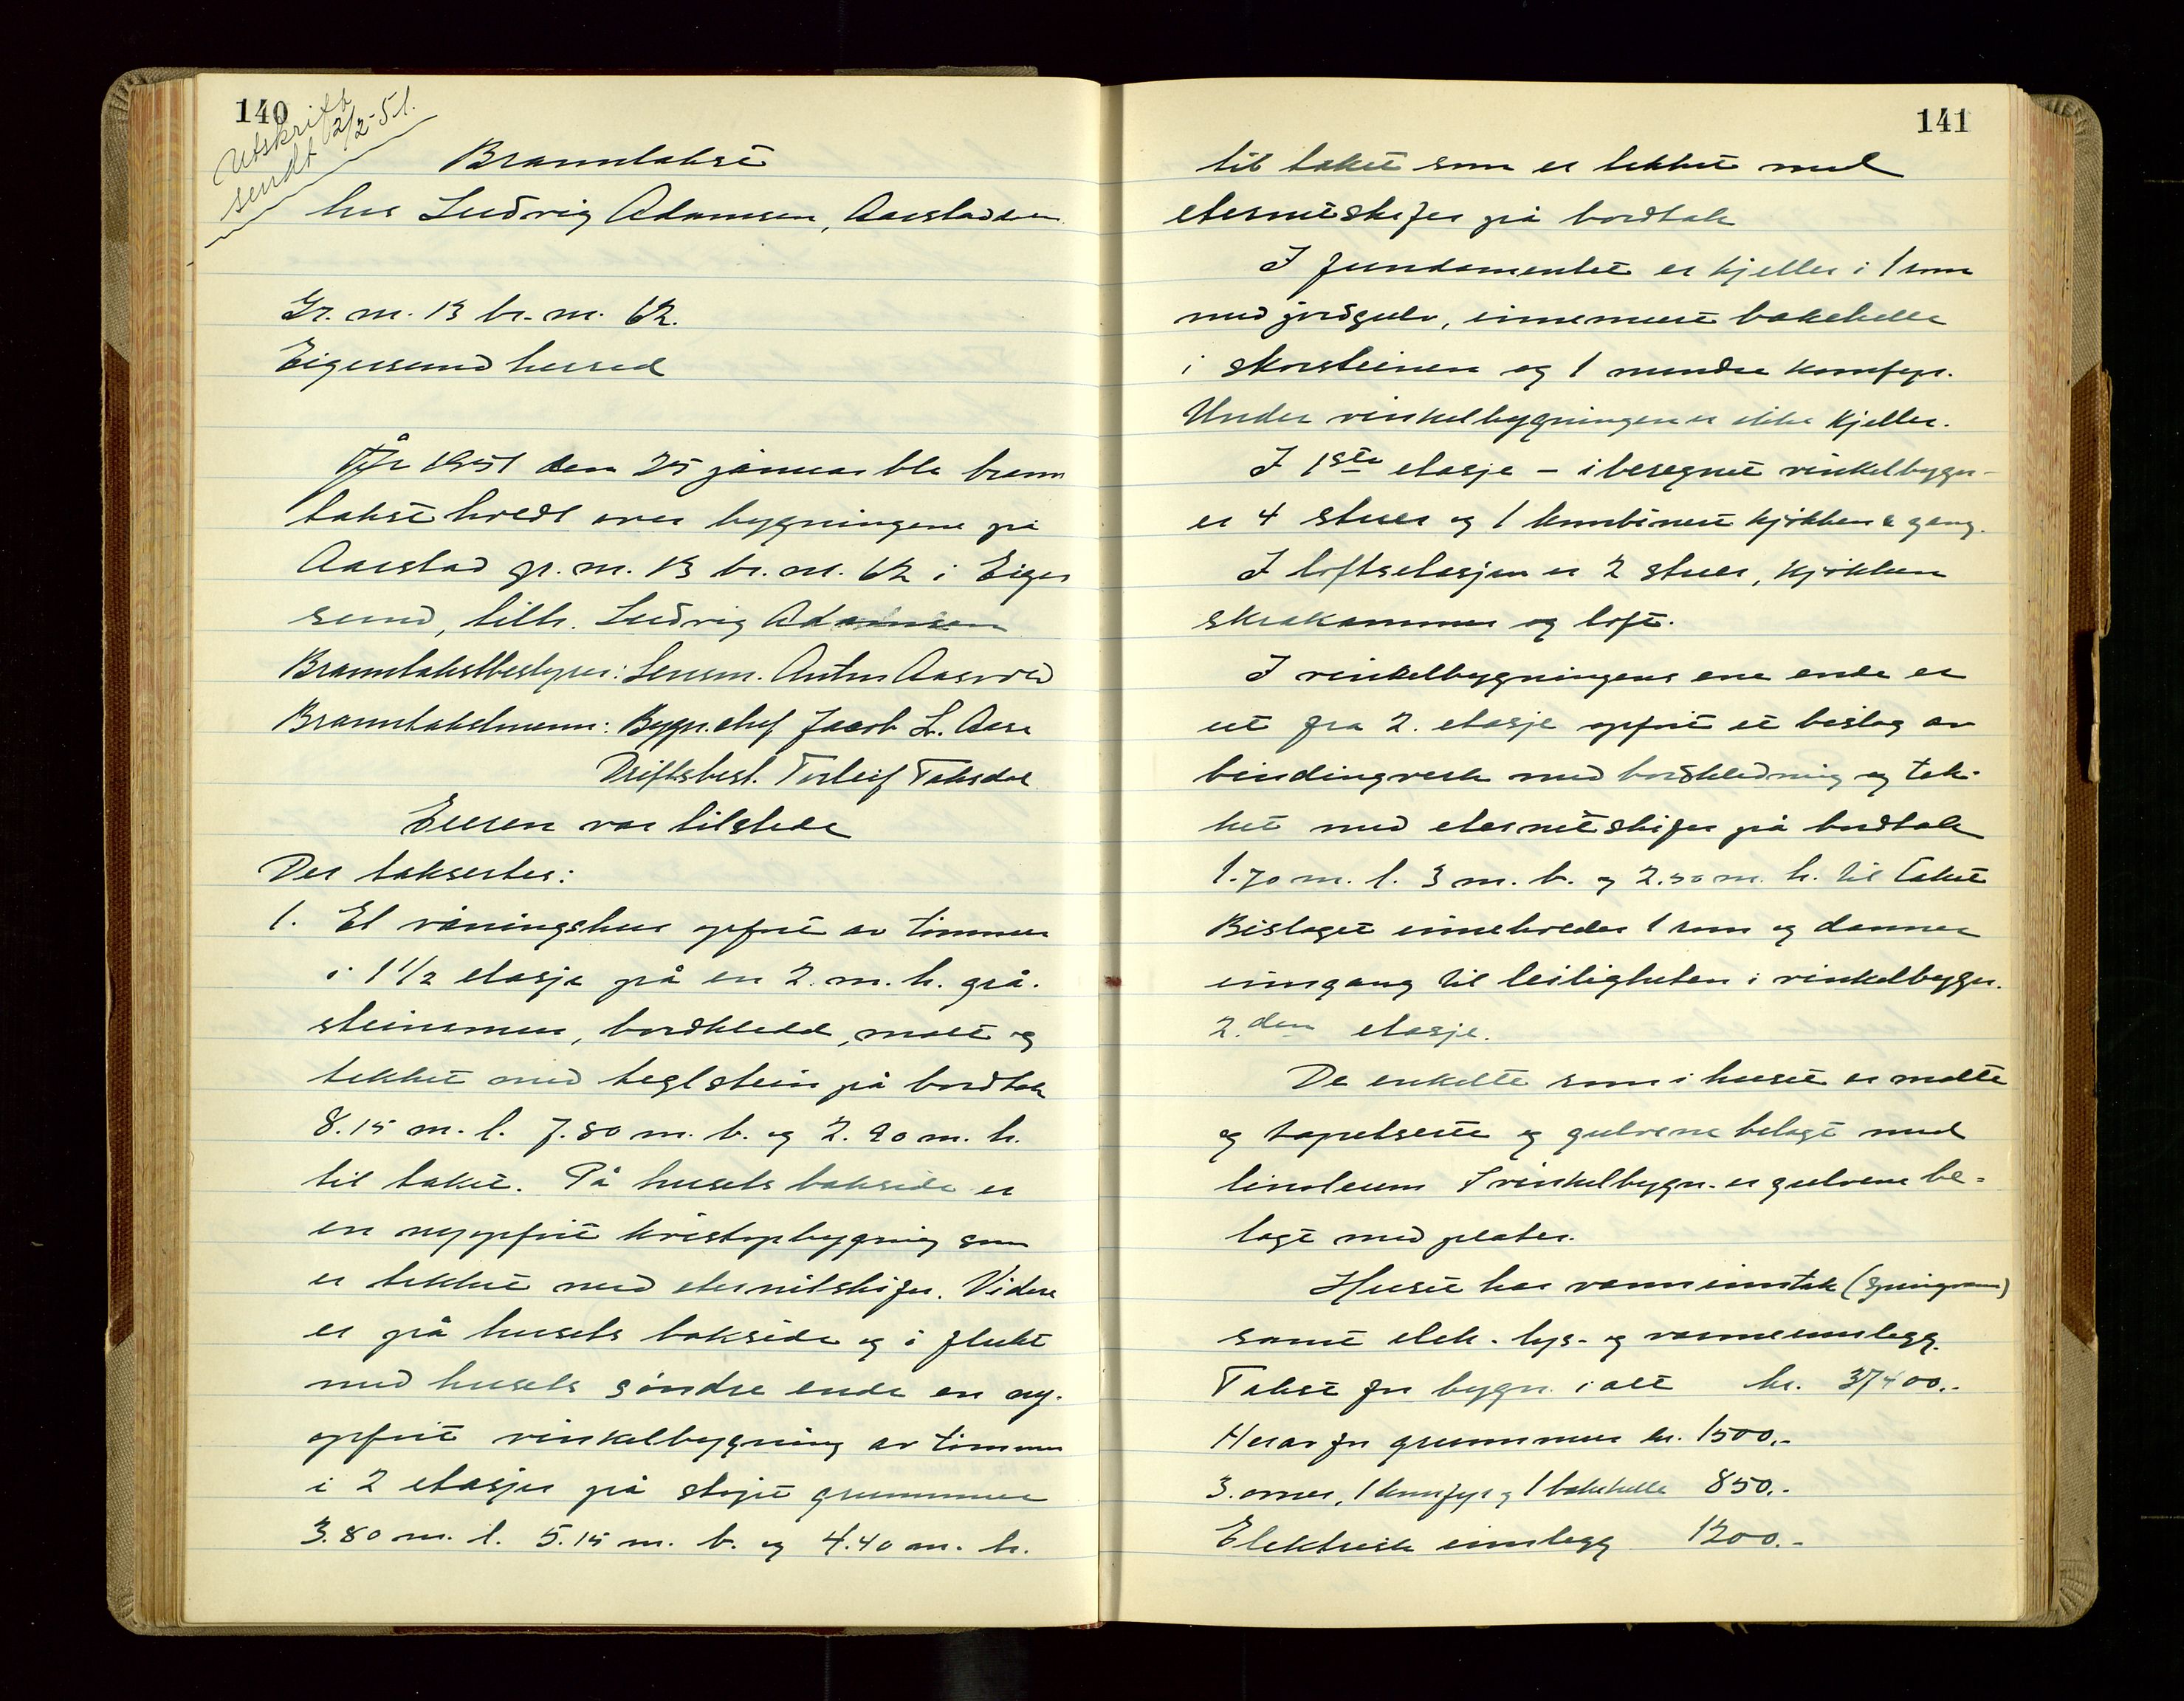 140
Utskrift
sendt 12/2-51.
Branntakst
hos Ludvig Adamsen, Aarstaddalen
Gr. nr. 13 br. nr. 62.
Eigersund herred
År 1951 den 25 januar ble brann
takst holdt over bygningene på
Aarstad gr. nr. 13 br. nr. 62 i Eiger
sund, tilh. Ludvig Adamsen
Branntakstbestyrer: Lensm. Anton Aasvold
Branntakstmenn: Bygn.chef Jacob L. Aase
Driftsbest. Torleif Taksdal
Eieren var tilstede
Der takseertes:
1. Et våningshus opført av tømmer
i 1 1/2 etasje på en 2. m. h. grå-
steinsmur, bordkledd, malt og
tekket med teglstein på bordtak
8.15 m. l. 7.80 m. b. og 2.90 m. h.
til taket. På husets bakside er
en nyoppført kvistopbygning som
er tekket med eternitskifer. Videre
er på husets bakside og i flukt
med husets søndre ende en ny-
opført vinkelbygning av tømmer
i 2 etasjer på støpt grunnmur
3.80 m. l. 5.15 m. b. og 4.40 m. h.
141
til taket som er tekket med
eternitskifer på bordtak
I fundamentet er kjeller i 1 rom
med jordgulv, innemuret bakehelle
i skorsteinen og 1 mindre komfyr.
Under vinkelbygningen er ikke kjeller.
I 1ste etasje - iberegnet vinkelbygn-
er 4 stuer og 1 kombinert kjøkken & gang.
I loftsetasjen er 2 stuer, kjøkken
skråkammer og loft.
I vinkelbygningens ene ende er
ut fra 2. etasje opført et bislag av
bindingverk med bordkledning og tek-
ket med eternitskifer på bordtak
1.70 m. l. 3 m. b. og 2.50 m. h. til taket
Bislaget inneholder 1 rom og danner
inngang til leiligheten i vinkelbygn.
2.den etasje.
De enkelte rom i huset er malte
og tapetserte og gulvene belagt med
linoleum I vinkelbygn. er gulvene be=
lagt med plater.
Huset har vanninntak (springvann)
samt elek. lys- og varmeinnlegg.
Takst for bygn. i alt kr. 37400.-
Herav for grunnmur kr. 1500.-
3. ovner, 1 komfyr og 1 bakehelle 850.-
Elektrisk innlegg 1200.-